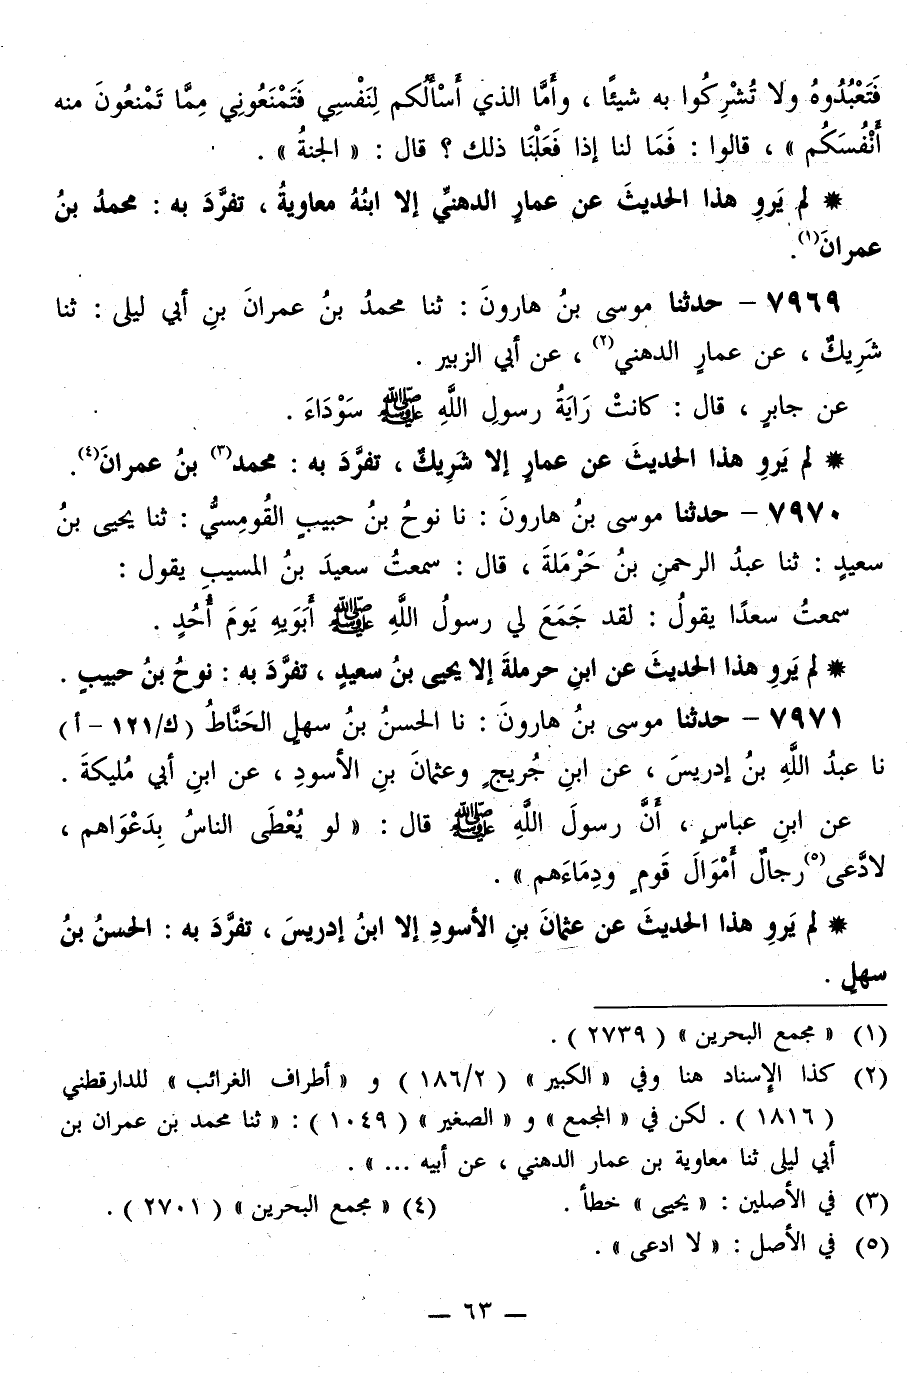 فَتَعْبُدُوهُ ولا تُشْرِكُوا به شيئًا ، وأَمَّا الذي أَسْأَلُكم لِنَفْسِي فَتَمْنَعُونِي مِمَّا تَمْنعُونَ منه
أَنْفُسَكُم » ، قالوا : فَمَا لنا إذا فَعَلْنَا ذلك ؟ قال : « الجنةُ » .
✷ لم يَروِ هذا الحديثَ عن عمارٍ الدهنيِّ إلا ابنُهُ معاويةُ ، تفرَّدَ به : محمدُ بنُ
عمرانَ(١).
٧٩٦٩ – حدثنا موسى بنُ هارونَ : ثنا محمدُ بنُ عمرانَ بنِ أبي ليلى : ثنا
شَرِيكٌ ، عن عمارٍ الدهني(٢) ، عن أبي الزبير .
عن جابرٍ ، قال : كانتْ رَايَةُ رسولِ اللَّهِ ﷺ سَوْدَاءَ .
✷ لم يَروِ هذا الحديثَ عن عمارٍ إلا شَرِيكٌ ، تفرَّدَ به : محمد(٣) بنُ عمرانَ(٤).
٧٩٧٠ – حدثنا موسى بنُ هارونَ : نا نوحُ بنُ حبيبٍ القُومِسيُّ : ثنا يحيى بنُ
سعيدٍ : ثنا عبدُ الرحمنِ بنُ حَرْمَلةَ ، قال : سمعتُ سعيدَ بنُ المسيبِ يقول :
سمعتُ سعدًا يقولُ : لقد جَمَعَ لي رسولُ اللَّهِ ﷺ أَبَوَيهِ يَومَ أُحُدٍ .
✷ لم يَروِ هذا الحديثَ عن ابنِ حرملةَ إلا يحيى بنُ سعيدٍ ، تفرَّدَ به : نوحُ بنُ حبيبٍ .
٧٩٧١ – حدثنا موسى بنُ هارونَ : نا الحسنُ بنُ سهلٍ الحَنَّاطُ (ك/١٢١ – أ)
نا عبدُ اللَّهِ بنُ إدريسَ ، عن ابنِ جُريجٍ وعثمانَ بنِ الأسودِ ، عن ابنِ أبي مُليكةَ .
عن ابنِ عباسٍ ، أَنَّ رسولَ اللَّهِ ﷺ قال : « لو يُعْطَى الناسُ بِدَعْوَاهم ،
لادَّعى(٥) رجالٌ أَمْوَالَ قَومٍ ودِمَاءَهم » .
✷ لم يَروِ هذا الحديثَ عن عثمانَ بنِ الأسودِ إلا ابنُ إدريسَ ، تفرَّدَ به : الحسنُ بنُ
سهلٍ .
(١) « مجمع البحرين » ( ٢٧٣٩ ) .
(٢) كذا الإسناد هنا وفي « الكبير » ( ١٨٦/٢ ) و « أطراف الغرائب » للدارقطني
( ١٨١٦ ) . لكن في « المجمع » و « الصغير » ( ١٠٤٩ ) : « ثنا محمد بن عمران بن
أبي ليلى ثنا معاوية بن عمار الدهني ، عن أبيه ... » .
(٣) في الأصلين : « يحيى » خطأ .    (٤) « مجمع البحرين » ( ٢٧٠١ ) .
(٥) في الأصل : « لا ادعى » .
— ٦٣ —